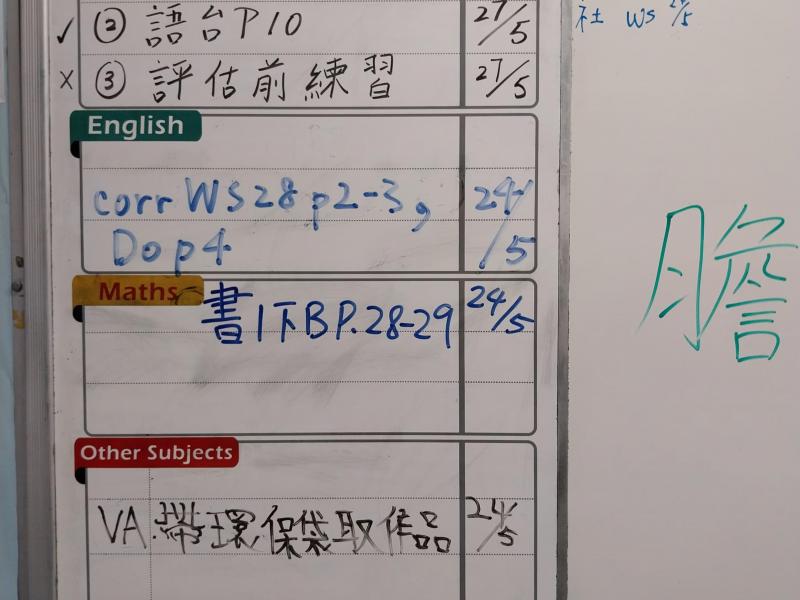 ✓ ② 語台P10 27/5
x ③ 評估前練習 27/5
English
corr WS28 p2-3, 24/5
Do p4
Maths
書1下B P.28-29 24/5
Other Subjects
VA.帶環保袋取作品 24/5
社 WS 24/5
膽